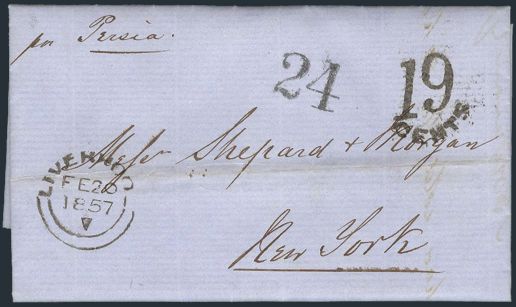 per Persia.
24
19
CENTS
Messrs Shepard & Morgan
LIVERPOOL
FE 28
1857
New York